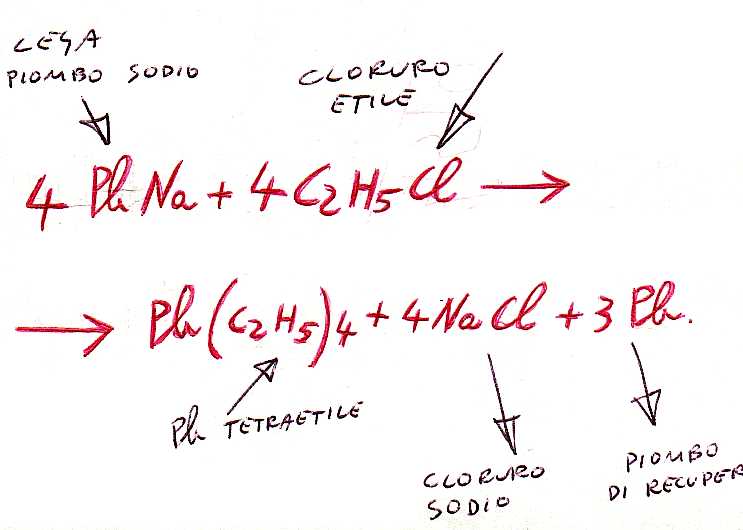 LEGA
PIOMBO SODIO
CLORURO
ETILE
4 Pb Na + 4 C2H5Cl →
→ Pb(C2H5)4 + 4NaCl + 3 Pb.
Pb TETRAETILE
CLORURO
SODIO
PIOMBO
DI RECUPER